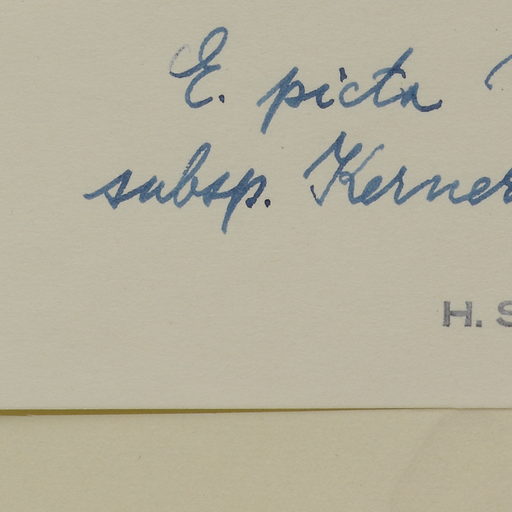 E. picta
subsp. Kerner
H. S